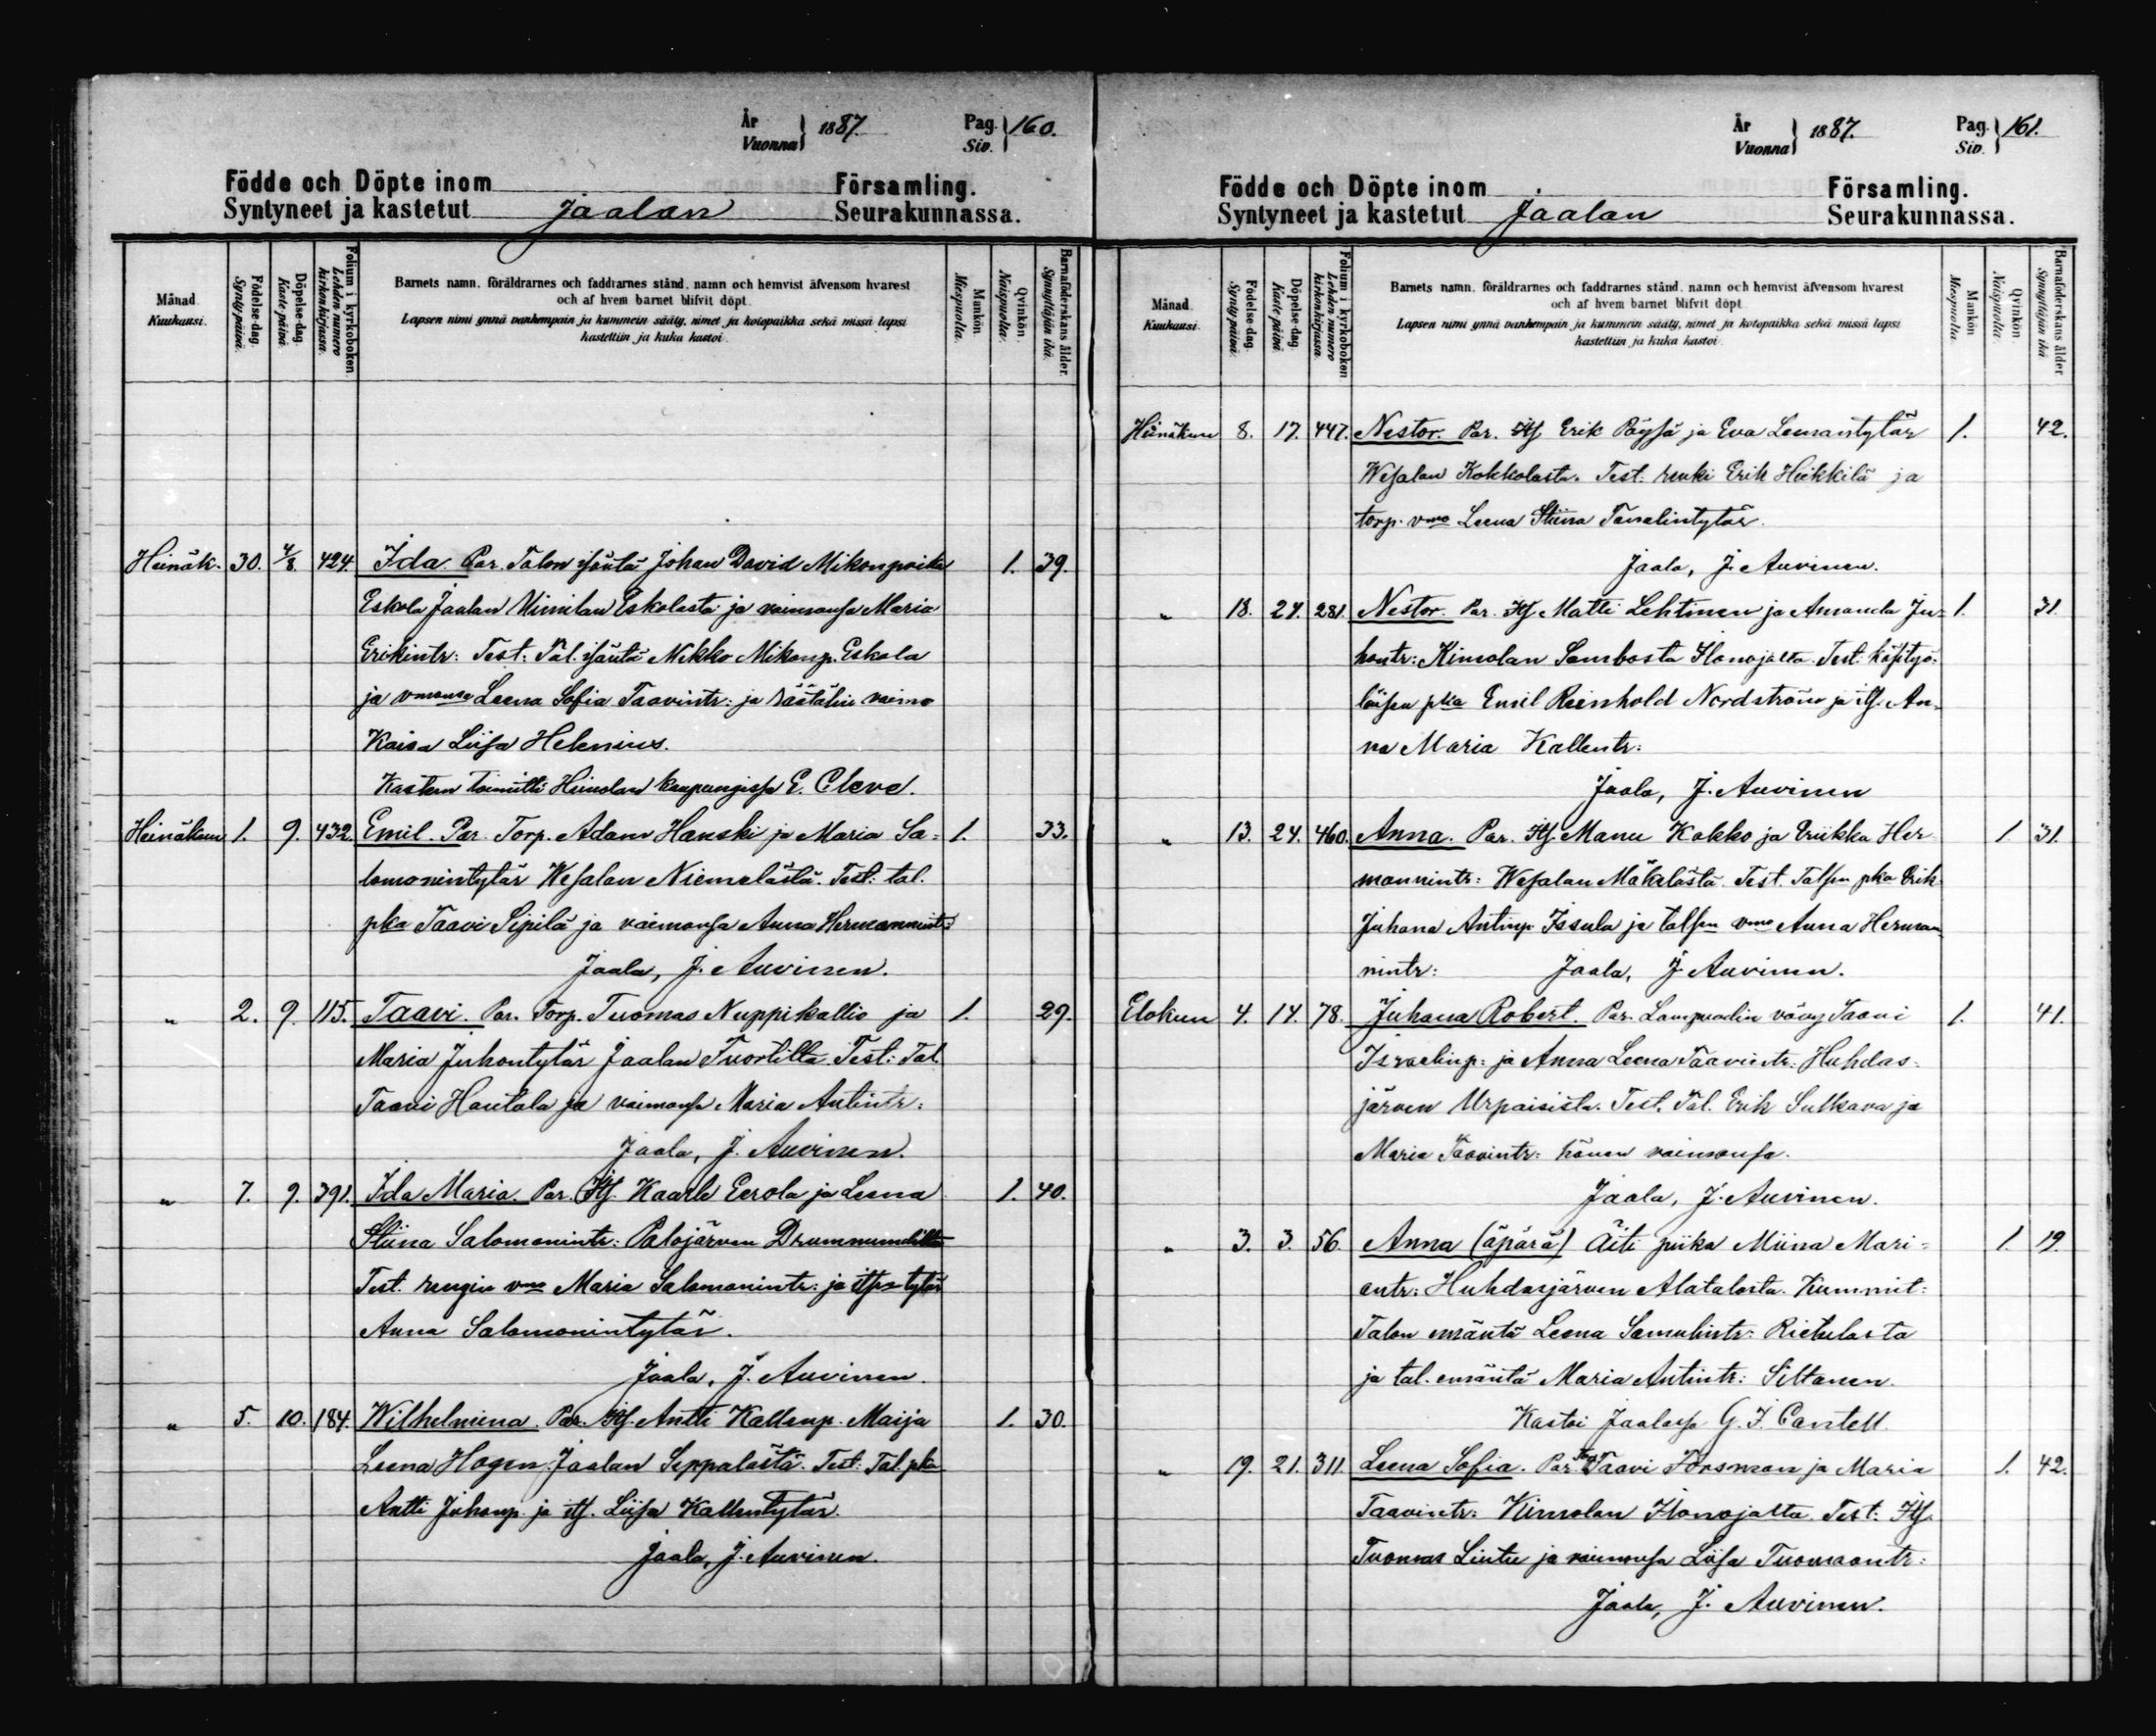 År
Vuonna } 1887.
Pag.
Siv. } 160.
Födde och Döpte inom Församling.
Syntyneet ja kastetut Jaalan Seurakunnassa.
Månad.
Kuukausi.
Födelse-dag.
Synty-päivä.
Döpelse-dag.
Kaste-päivä.
Folium i kyrkoboken
Lehden numero
kirkonkirjassa.
Barnets namn, föräldrarnes och faddrarnes stånd, namn och hemvist äfvensom hvarest
och af hvem barnet blifvit döpt.
Lapsen nimi ynnä vanhempain ja kummein sääty, nimet ja kotopaikka sekä missä lapsi
kastettiin ja kuka kastoi.
Mankön.
Miespuolia.
Qvinkön.
Naispuolia.
Barnaföderskans ålder.
Synnyttäjän ikä.
Heinäk. 30. 4/8. 424. Ida. Par. Talon isäntä Johan David Mikonpoika 1. 39.
Eskola Jaalan Uimilan Eskolasta ja vaimonsa Maria
Erikintr: Test: Tal. isäntä Mikko Mikonp. Eskola
ja vmonsa Leena Sofia Taavintr: ja räätälin vaimo
Kaisa Liisa Helenius.
Kasteen toimitti Heinolan kaupungissa E. Cleve.
Heinäkuu 1. 9. 432. Emil. Par. Torp. Adam Hanski ja Maria Sa= 1. 33.
lomonintytär Wesalan Niemelästä. Test: tal.
pka Taavi Sipilä ja vaimonsa Anna Hermannintr:
Jaala, J. Auvinen.
„ 2. 9. 115. Taavi. Par. Torp. Tuomas Nuppikallio ja 1. 29.
Maria Juhontytär Jaalan Tuortilta. Test: Tal.
Taavi Hautala ja vaimonsa Maria Antintr:
Jaala, J. Auvinen.
„ 7. 9. 391. Ida Maria. Par. Its. Kaarle Eerola ja Leena 1. 40.
Stiina Salomonintr: Palojärven Drummundilta
Test. rengin vmo Maria Salomonintr: ja itsen tytär
Anna Salomonintytär.
Jaala, J. Auvinen.
„ 5. 10. 184. Wilhelmiina. Par. Its. Antti Kallenp. Maija 1. 30.
Leena Hogen Jaalan Seppalästä. Test: Tal. pka
Antti Juhonp. ja its. Liisa Kallentytär.
Jaala, J. Auvinen.
År
Vuonna } 1887.
Pag.
Siv. } 161.
Födde och Döpte inom Församling.
Syntyneet ja kastetut Jaalan Seurakunnassa.
Månad
Kuukausi.
Födelse-dag.
Synty-päivä.
Döpelse-dag.
Kaste-päivä.
Folium i kyrkoboken
Lehden numero
kirkonkirjassa.
Barnets namn, föräldrarnes och faddrarnes stånd, namn och hemvist äfvensom hvarest
och af hvem barnet blifvit döpt.
Lapsen nimi ynnä vanhempain ja kummein sääty, nimet ja kotopaikka sekä missä lapsi
kastettiin ja kuka kastoi.
Mankön
Miespuolia.
Qvinkön
Naispuolia.
Barnaföderskans ålder
Synnyttäjän ikä
Heinäkuu 8. 17. 447. Nestor. Par. Its Erik Pöysä ja Eva Leenantytär 1. 42.
Wesalan Kokkolasta. Test: renki Erik Heikkilä ja
torp. vmo Leena Stiina Taneelintytär.
Jaala, J. Auvinen.
„ 18. 24. 281. Nestor. Par. Its. Matti Lehtinen ja Amanda Ju= 1. 31.
hontr: Kimolan Sambosta Ilonojalta. Test. käsityö=
läisen pka Emil Reinhold Nordström ja its. An=
na Maria Kallentr:
Jaala, J. Auvinen
„ 13. 24. 460. Anna. Par. Its. Manu Kokko ja Eriikka Her= 1. 31.
mannintr: Wesalan Mäkelästä. Test. Talsen pka Erik
Juhana Antinp. Issula ja talsen vmo Anna Herman
nintr: Jaala, J. Auvinen.
Elokuu 4. 14. 78. Juhana Robert. Par. Lampuodin vävy Taavi 1. 41.
Israelinp: ja Anna Leena Taavintr: Huhdas=
järven Urpaisista. Test. Tal. Erik Sulkava ja
Maria Taavintr: hänen vaimonsa.
Jaala, J. Auvinen.
„ 3. 3. 56. Anna (äpärä) Äiti piika Miina Mari= 1. 19.
antr: Huhdasjärven Alatalosta. Kummit:
Talon emäntä Leena Samulintr: Rietulasta
ja tal. emäntä Maria Antintr: Siltanen.
Kastoi Jaalassa G. J. Cantell
„ 19. 21. 311. Leena Sofia. Par. Torp. Taavi Forsman ja Maria 1. 42.
Taavintr: Kimolan Ilonojalta. Test: Its.
Tuomas Lintu ja vaimonsa Liisa Tuomaantr:
Jaala, J. Auvinen.